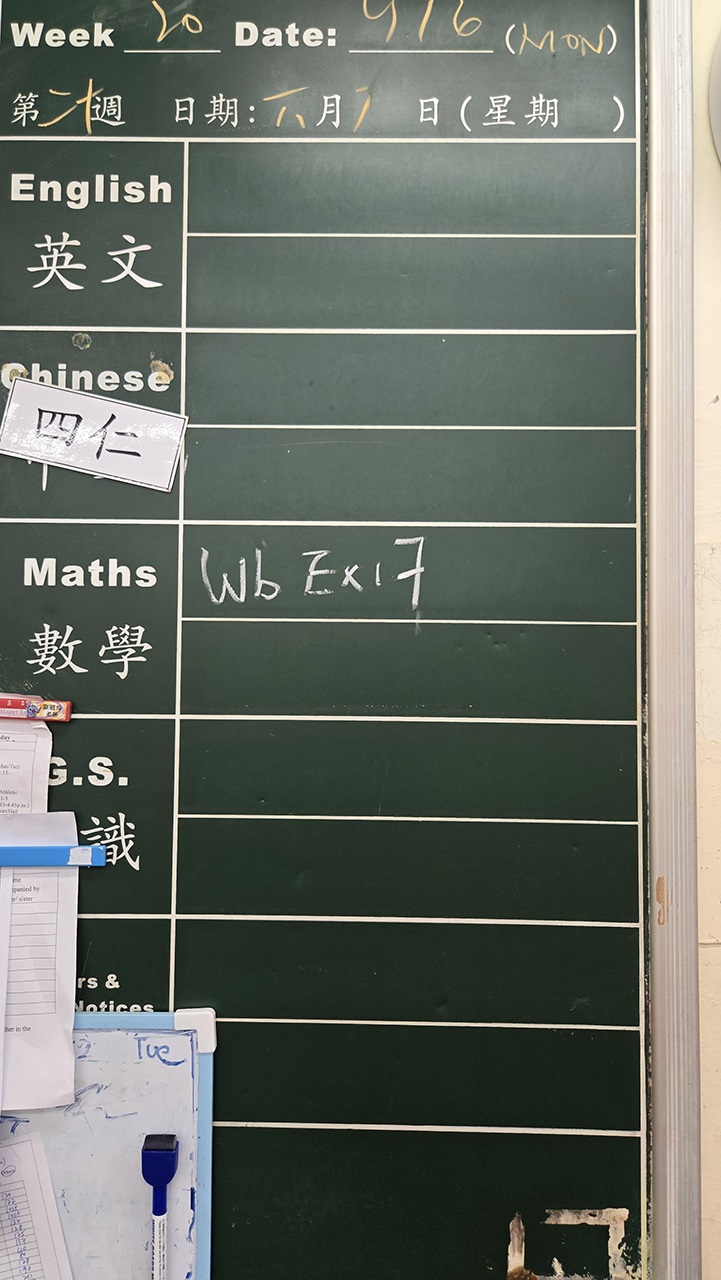 Week 20 Date: 9/6 (MON)
第二十週 日期:六月 日(星期 )
English
英文
Chinese
四仁
Maths
Wb Ex 17
數學
G.S.
識
rs &
Notices
Tue